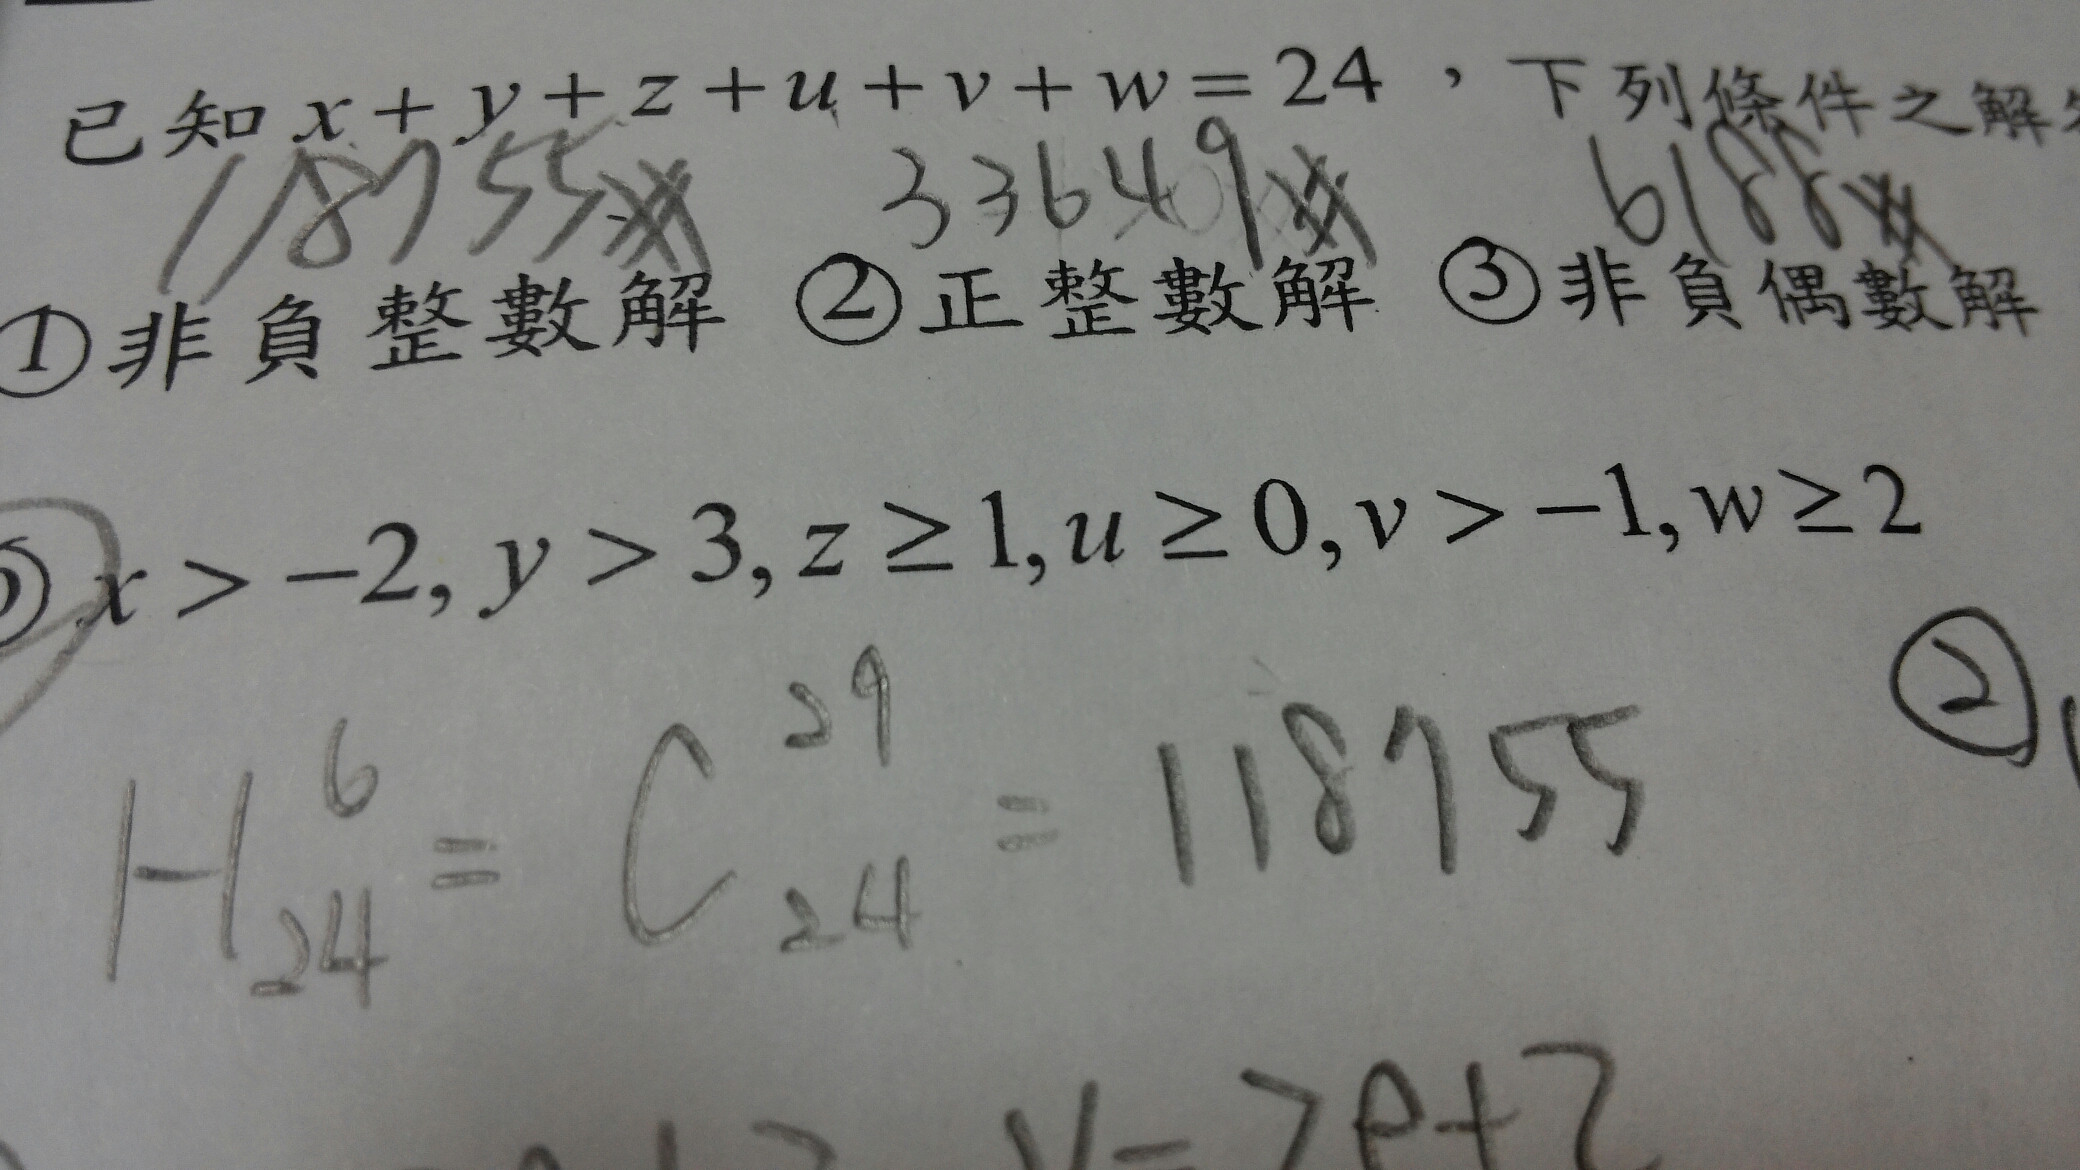 已知 x + y + z + u + v + w = 24，下列條件之解
118755 33649 6188
①非負整數解 ②正整數解 ③非負偶數解
x > −2, y > 3, z ≥ 1, u ≥ 0, v > −1, w ≥ 2
②
H⁶₂₄ = C²⁹₂₄ = 118755